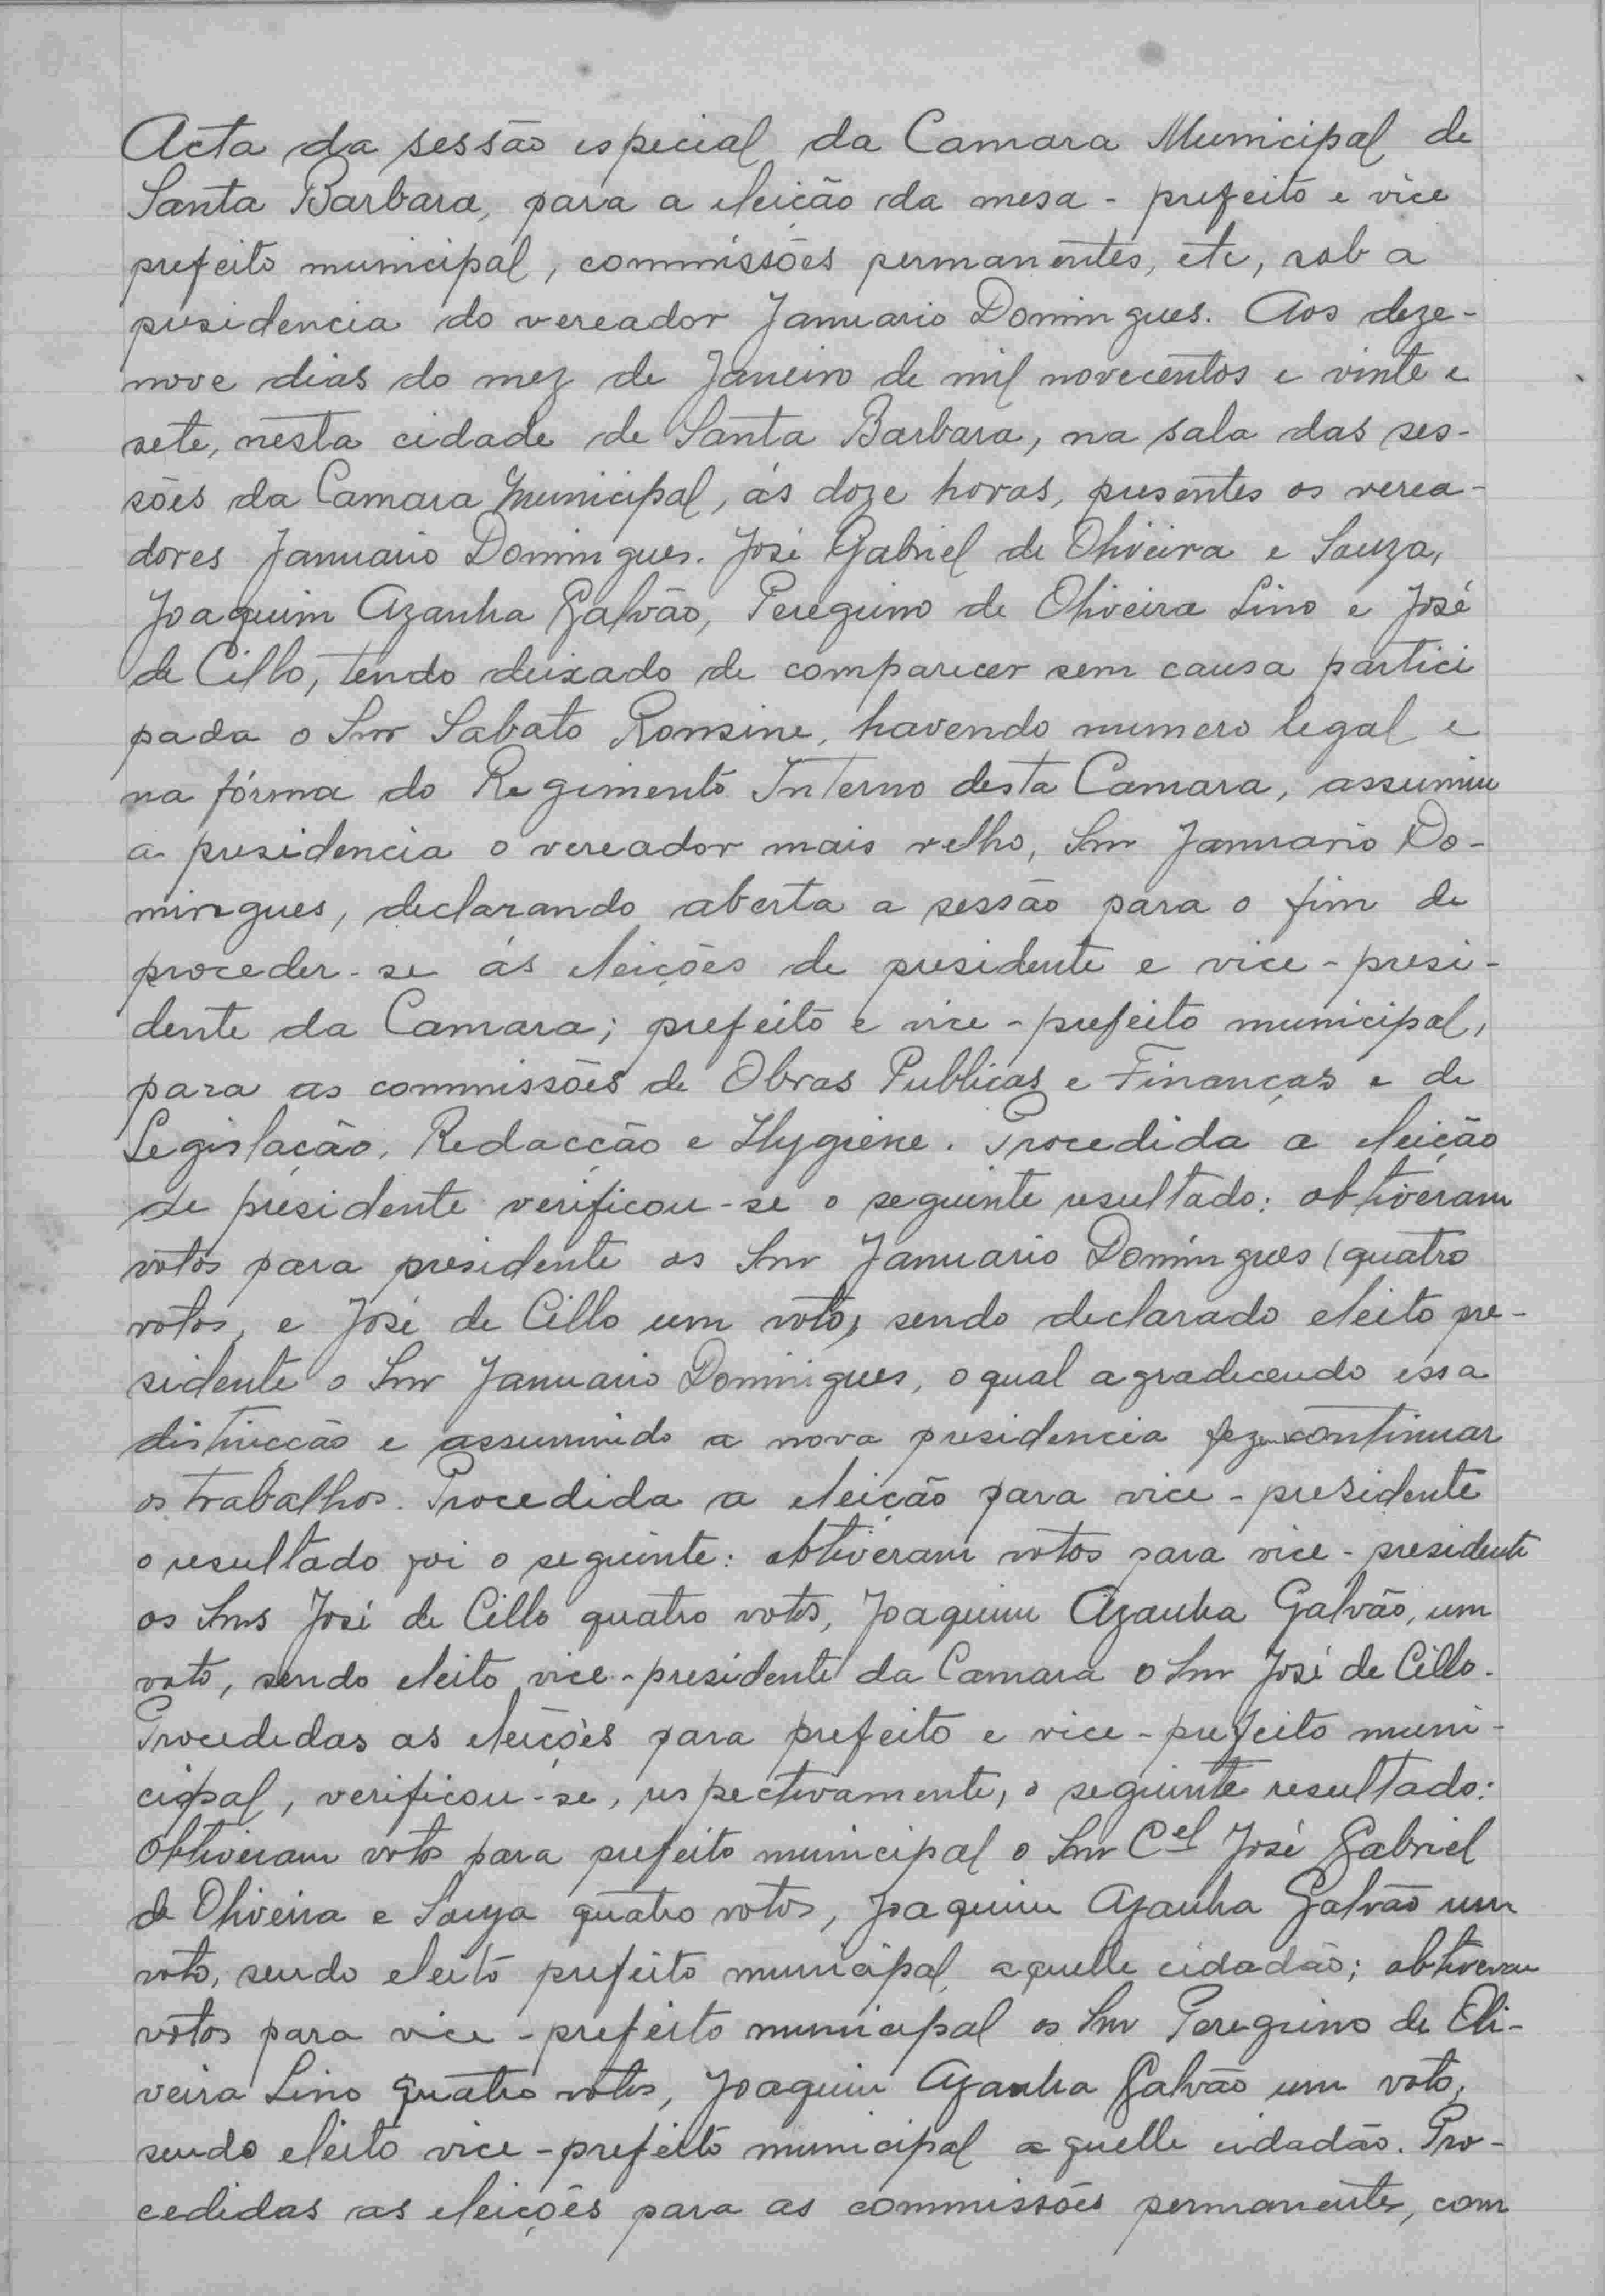 Acta da sessão especial da Camara Municipal de
Santa Barbara, para a eleição da mesa - prefeito e vice
prefeito municipal, commissões permanentes, etc, sob a
presidencia do vereador Januario Domingues. Aos deze-
nove dias do mez de Janeiro de mil novecentos e vinte e
sete, nesta cidade de Santa Barbara, na sala das ses-
sões da Camara Municipal, ás doze horas, presentes os verea-
dores Januario Domingues. José Gabriel de Oliveira e Souza,
Joaquim Azanha Galvão, Peregrino de Oliveira Lino e José
de Cillo, tendo deixado de comparecer sem causa partici
pada o Snr Sabato Ronsine, havendo numero legal e
na fórma do Regimento Interno desta Camara, assumiu
a presidencia o vereador mais velho, Snr Januario Do-
mingues, declarando aberta a sessão para o fim de
proceder-se ás eleições de presidente e vice-presi-
dente da Camara; prefeito e vice-prefeito municipal,
para as commissões de Obras Publicas e Finanças e de
Legislação, Redacção e Hygiene. Procedida a eleição
de presidente verificou-se o seguinte resultado: obtiveram
votos para presidente os Snr Januario Domingues (quatro
votos, e José de Cillo um voto, sendo declarado eleito pre-
sidente o Snr Januario Domingues, o qual agradecendo essa
distincção e assumindo a nova presidencia fez continuar
os trabalhos. Procedida a eleição para vice-presidente
o resultado foi o seguinte: obtiveram votos para vice-presidente
os Snrs José de Cillo quatro votos, Joaquim Azanha Galvão, um
voto, sendo eleito vice-presidente da Camara o Snr José de Cillo.
Procedidas as eleições para prefeito e vice-prefeito muni-
cipal, verificou-se, respectivamente, o seguinte resultado:
Obtiveram votos para prefeito municipal o Snr Cel José Gabriel
de Oliveira e Souza quatro votos, Joaquim Azanha Galvão um
voto, sendo eleito prefeito municipal aquelle cidadão; obtiveram
votos para vice-prefeito municipal os Snr Peregrino de Oli-
veira Lino quatro votos, Joaquim Azanha Galvão um voto,
sendo eleito vice-prefeito municipal aquelle cidadão. Pro-
cedidas as eleições para as commissões permanentes, com